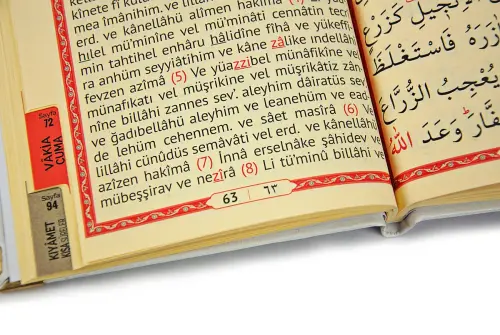 mea îmânihim. ve lillâhi
erd. ve kânellâhü alîmen hakîmâ
hilel mü'minîne vel mü'minâti cennâtin tecrî
min tahtihel enhâru hâlidîne fîhâ ve yükeffi
ra anhüm seyyiâtihim ve kâne zâlike indellâhi
fevzen azîmâ (5) Ve yüazzibel münâfikîne vel
münafikâti vel müşrikîne vel müşrikâtiz zân
nîne billâhi zannes sev'. aleyhim dâiratüs sev
ve ğadıbellâhü aleyhim ve leanehüm ve ead
de lehüm cehennem. ve sâet masîrâ (6) Ve
lillâhi cünûdüs semâvâti vel erd. ve kânellâhü
azîzen hakîmâ (7) İnnâ erselnâke şâhidev ve
mübeşşirav ve nezîrâ (8) Li tü'minû billâhi ve
63 | ٦٣
Sayfa
72
VÂKIA
CUMA
Sayfa
94
KIYÂMET
KISA SÛRELER
كَزَرْعٍ
زَرَهُ فَاسْتَغْلَظَ
يُعْجِبُ الزُّرَّاعَ
فَّارَ وَعَدَ اللّٰهُ